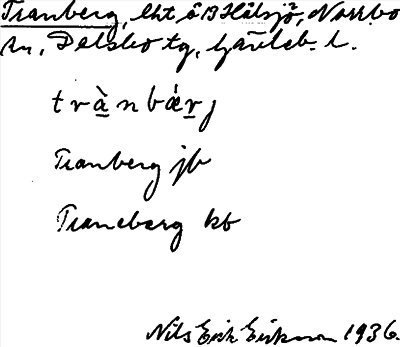 Tranberg, lht å B Hålsjö, Norrbo
sn, Delsbo tg, Gävleb. l.
trànbǽrj
Tranberg jb
Traneberg kb
Nils Erik Eriksson 1936.